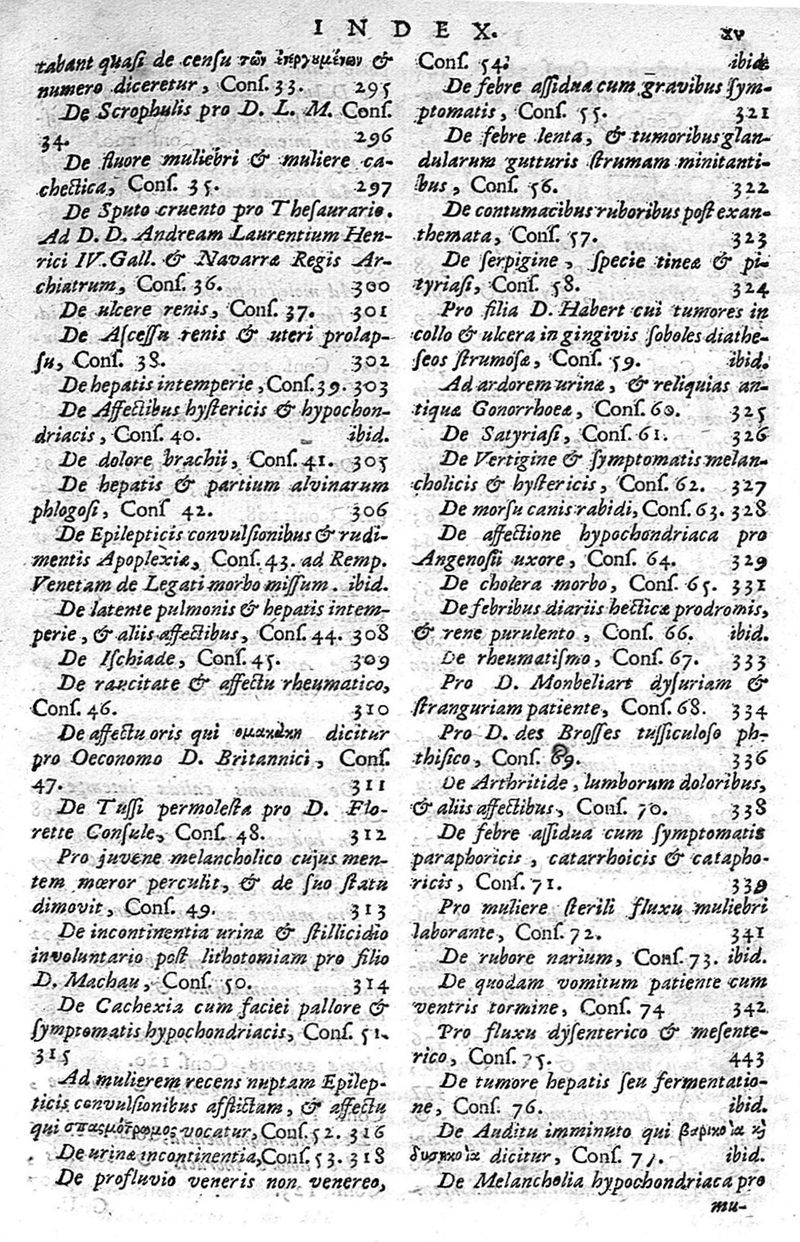 INDEX.
xv
tabant quasi de censu τῶν ἐνεργουμένων &
numero diceretur, Conſ. 33. 295
De Scrophulis pro D. L. M. Conſ.
34. 296
De fluore muliebri & muliere ca-
chectica, Conſ. 35. 297
De Sputo cruento pro Theſaurario.
Ad D. D. Andream Laurentium Hen-
rici IV. Gall. & Navarræ Regis Ar-
chiatrum, Conſ. 36. 300
De ulcere renis, Conſ. 37. 301
De Aſceſſu renis & uteri prolap-
ſu, Conſ. 38. 302
De hepatis intemperie, Conſ. 39. 303
De Affectibus hyſtericis & hypochon-
driacis, Conſ. 40. ibid.
De dolore brachii, Conſ. 41. 305
De hepatis & partium alvinarum
phlogoſi, Conſ 42. 306
De Epilepticis convulſionibus & rudi-
mentis Apoplexiæ, Conſ. 43. ad Remp.
Venetam de Legati morbo miſſum. ibid.
De latente pulmonis & hepatis intem-
perie, & aliis affectibus, Conſ. 44. 308
De Iſchiade, Conſ. 45. 309
De raucitate & affectu rheumatico,
Conſ. 46. 310
De affectu oris qui dicitur
pro Oeconomo D. Britannici, Conſ.
47. 311
De Tuſſi permoleſta pro D. Flo-
rette Conſule, Conſ. 48. 312
Pro juvene melancholico cujus men-
tem mœror perculit, & de ſuo ſtatu
dimovit, Conſ. 49. 313
De incontinentia urinæ & ſtillicidio
involuntario poſt lithotomiam pro filio
D. Machau, Conſ. 50. 314
De Cachexia cum faciei pallore &
ſymptomatis hypochondriacis, Conſ. 51.
315
Ad mulierem recens nuptam Epilep-
ticis convulſionibus afflictam, & affectu
qui σπασμότρωμος vocatur, Conſ. 52. 316
De urinæ incontinentia, Conſ. 53. 318
De profluvio veneris non venereo,
Conſ. 54. ibid.
De febre aſſidua cum gravibus ſym-
ptomatis, Conſ. 55. 321
De febre lenta, & tumoribus glan-
dularum gutturis ſtrumam minitanti-
bus, Conſ. 56. 322
De contumacibus ruboribus poſt exan-
themata, Conſ. 57. 323
De ſerpigine, ſpecie tineæ & pi-
tyriaſi, Conſ. 58. 324
Pro filia D. Habert cui tumores in
collo & ulcera in gingivis ſoboles diathe-
ſeos ſtrumoſæ, Conſ. 59. ibid.
Ad ardorem urinæ, & reliquias an-
tiquæ Gonorrhoeæ, Conſ. 60. 325
De Satyriaſi, Conſ. 61. 326
De Vertigine & ſymptomatis melan-
cholicis & hyſtericis, Conſ. 62. 327
De morſu canis rabidi, Conſ. 63. 328
De affectione hypochondriaca pro
Angenoſii uxore, Conſ. 64. 329
De cholera morbo, Conſ. 65. 331
De febribus diariis hecticæ prodromis,
& rene purulento, Conſ. 66. ibid.
De rheumatiſmo, Conſ. 67. 333
Pro D. Monbeliart dyſuriam &
ſtranguriam patiente, Conſ. 68. 334
Pro D. des Broſſes tuſſiculoſo ph-
thiſico, Conſ. 69. 336
De Arthritide, lumborum doloribus,
& aliis affectibus, Conſ. 70. 338
De febre aſſidua cum ſymptomatis
paraphoricis, catarrhoicis & catapho-
ricis, Conſ. 71. 339
Pro muliere ſterili fluxu muliebri
laborante, Conſ. 72. 341
De rubore narium, Conſ. 73. ibid.
De quodam vomitum patiente cum
ventris tormine, Conſ. 74 342
Pro fluxu dyſenterico & meſente-
rico, Conſ. 75. 443
De tumore hepatis ſeu fermentatio-
ne, Conſ. 76. ibid.
De Auditu imminuto qui βαρικοΐα κỳ
δυσηκοΐα dicitur, Conſ. 77. ibid.
De Melancholia hypochondriaca pro
mu-